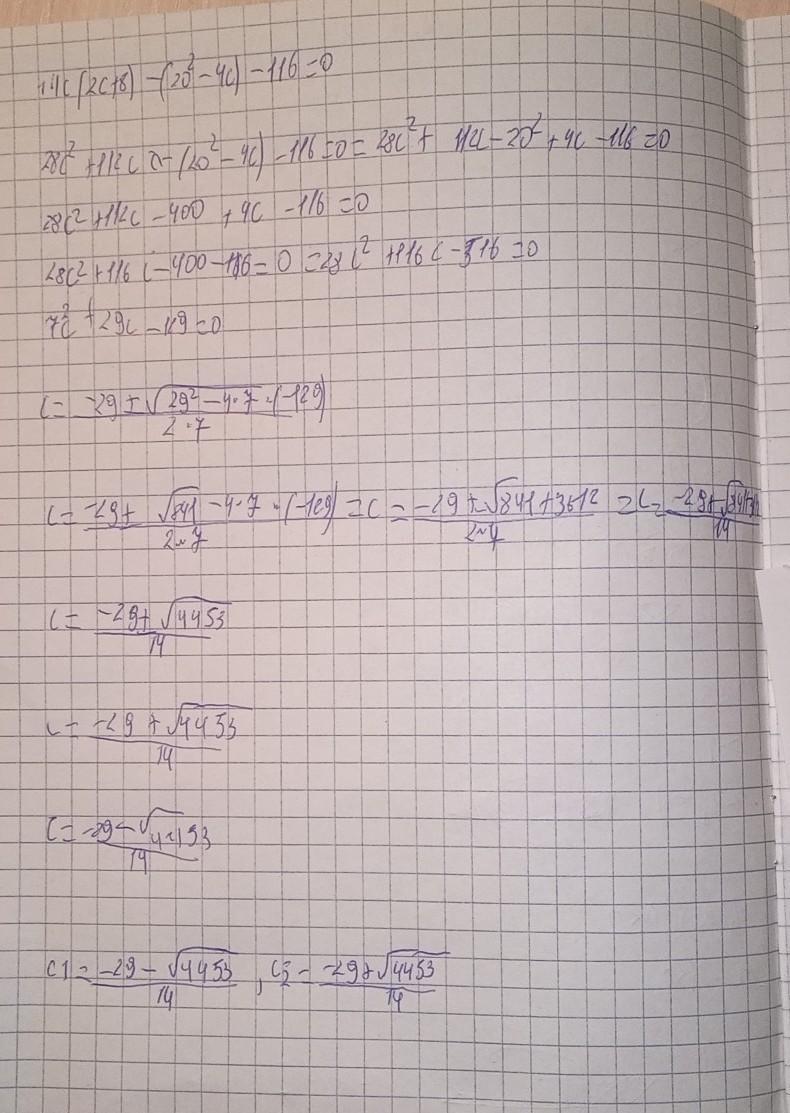 14c(2c+8) - (20² - 4c) - 116 = 0
28c² + 112c - (20² - 4c) - 116 = 0 = 28c² + 112c - 20² + 4c - 116 = 0
28c² + 112c - 400 + 4c - 116 = 0
28c² + 116c - 400 - 116 = 0 = 28c² + 116c - 516 = 0
7c² + 29c - 129 = 0
c = (-29 ± √(29² - 4·7·(-129)))/(2·7)
c = (-29 ± √841 - 4·7·(-129))/(2·7) = c = (-29 ± √(841+3612))/(2·7) = c = (-29 ± √(841+3612))/14
c = (-29 ± √4453)/14
c = (-29 + √4453)/14
c = (-29 - √4453)/14
c1 = (-29 - √4453)/14 , c2 = (-29 + √4453)/14